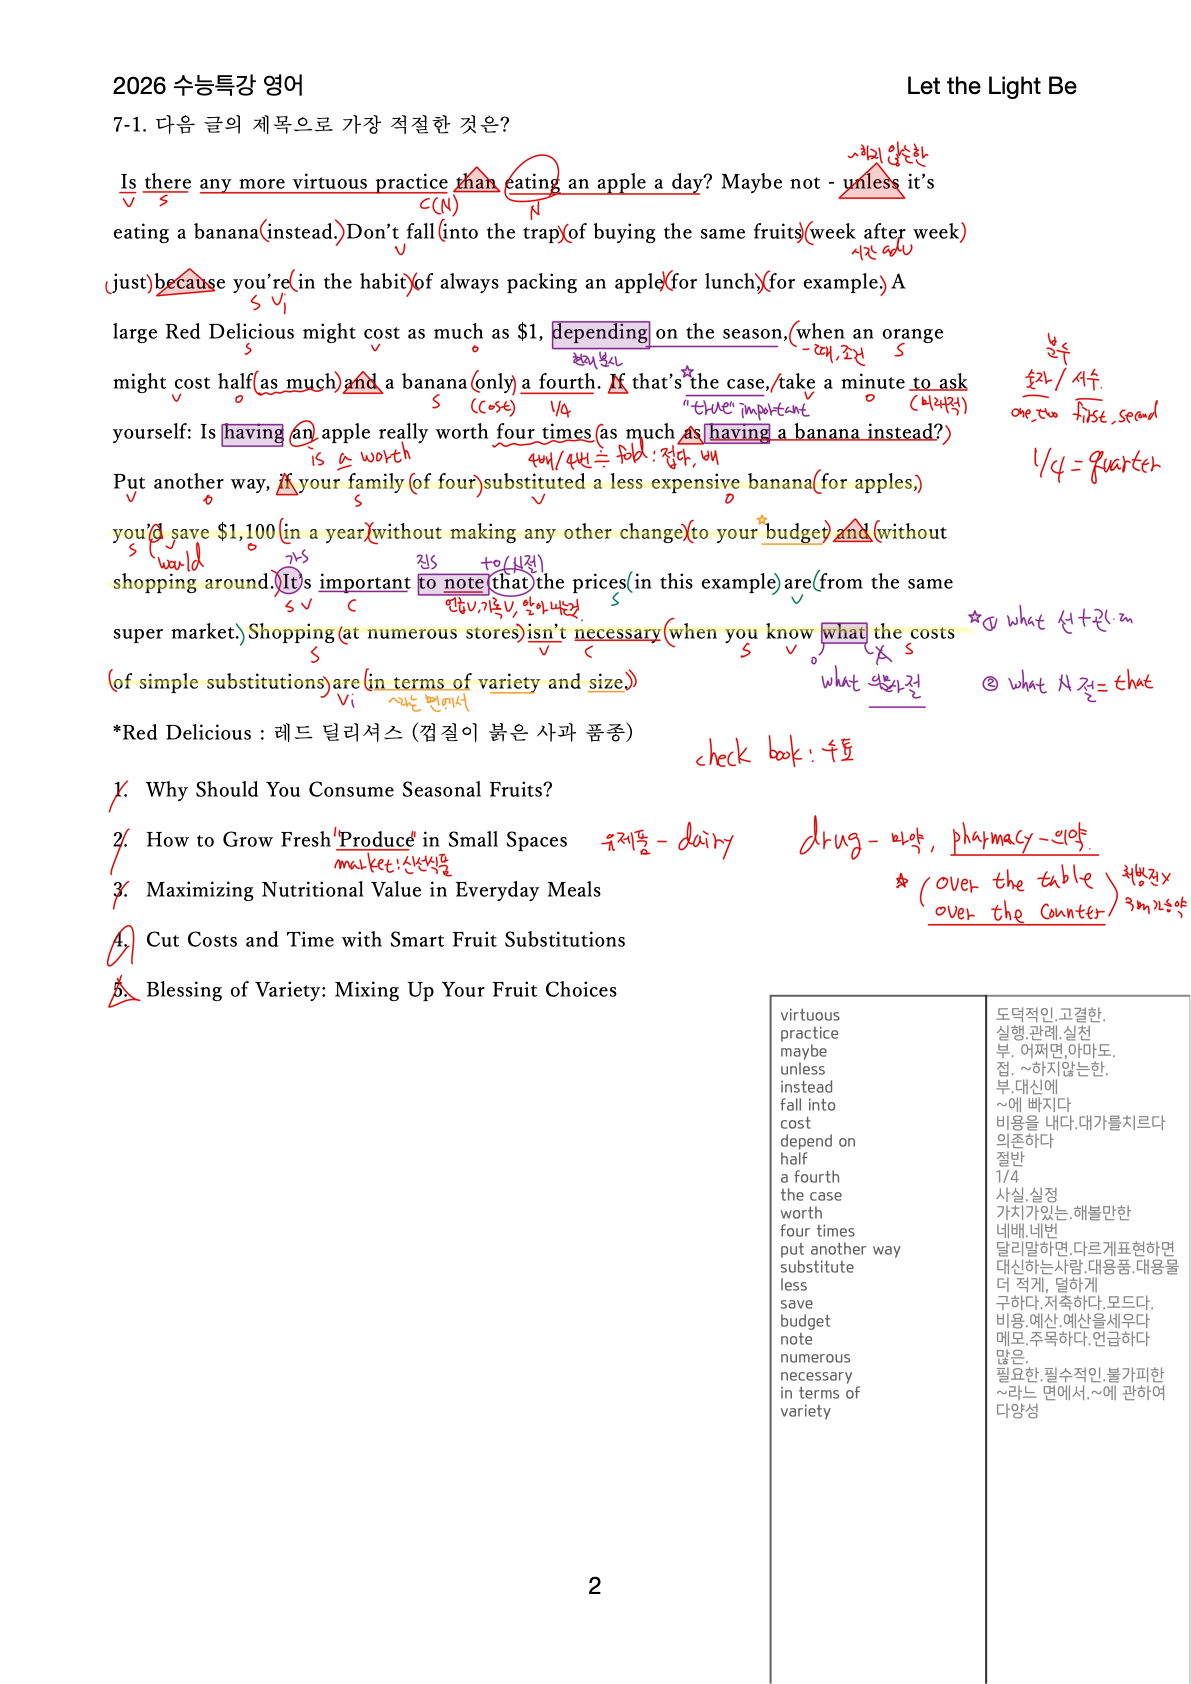 2026 수능특강 영어
Let the Light Be
7-1. 다음 글의 제목으로 가장 적절한 것은?
~하지 않는한
Is there any more virtuous practice than eating an apple a day? Maybe not - unless it's
V S C(N) N
eating a banana (instead.) Don't fall (into the trap) (of buying the same fruits) (week after week)
V 시간 adv
(just) because you're (in the habit) (of always packing an apple) (for lunch,) (for example.) A
S Vi
large Red Delicious might cost as much as $1, depending on the season, (when an orange
S V O 현재분사 -때, 조건 S
might cost half (as much) and a banana (only) a fourth. If that's the case, take a minute to ask
V O S (cost) 1/4 "true" important V O (미래적)
분수
숫자 / 서수.
one, two first, second
1/4 = quarter
yourself: Is having an apple really worth four times (as much as having a banana instead?)
is a worth 4배/4번 ≒ fold : 접다, 배
Put another way, if your family (of four) substituted a less expensive banana (for apples,)
V O S V O
you'd save $1,100 (in a year) (without making any other change) (to your budget) and (without
S V O would
가S 진S to(시절)
shopping around.) It's important to note that the prices (in this example) are (from the same
S V C 언급V, 기록V, S V
super market.) Shopping (at numerous stores) isn't necessary (when you know what the costs
S V C S V O S
☆① what 선+관.
(of simple substitutions) are (in terms of variety and size.))
Vi ~라는 면에서 what 의문사절
② what 시절 = that
*Red Delicious : 레드 딜리셔스 (껍질이 붉은 사과 품종)
check book : 수표
1. Why Should You Consume Seasonal Fruits?
2. How to Grow Fresh "Produce" in Small Spaces
market : 신선식품
유제품 - dairy
drug - 마약, pharmacy - 의약.
3. Maximizing Nutritional Value in Everyday Meals
☆ (over the table
over the counter) 처방전X
구매가능약
4. Cut Costs and Time with Smart Fruit Substitutions
5. Blessing of Variety: Mixing Up Your Fruit Choices
virtuous 도덕적인.고결한.
practice 실행.관례.실천
maybe 부. 어쩌면,아마도.
unless 접. ~하지않는한.
instead 부.대신에
fall into ~에 빠지다
cost 비용을 내다.대가를치르다
depend on 의존하다
half 절반
a fourth 1/4
the case 사실.실정
worth 가치가있는.해볼만한
four times 네배.네번
put another way 달리말하면.다르게표현하면
substitute 대신하는사람.대용품.대용물
less 더 적게, 덜하게
save 구하다.저축하다.모드다.
budget 비용.예산.예산을세우다
note 메모.주목하다.언급하다
numerous 많은.
necessary 필요한.필수적인.불가피한
in terms of ~라느 면에서.~에 관하여
variety 다양성
2